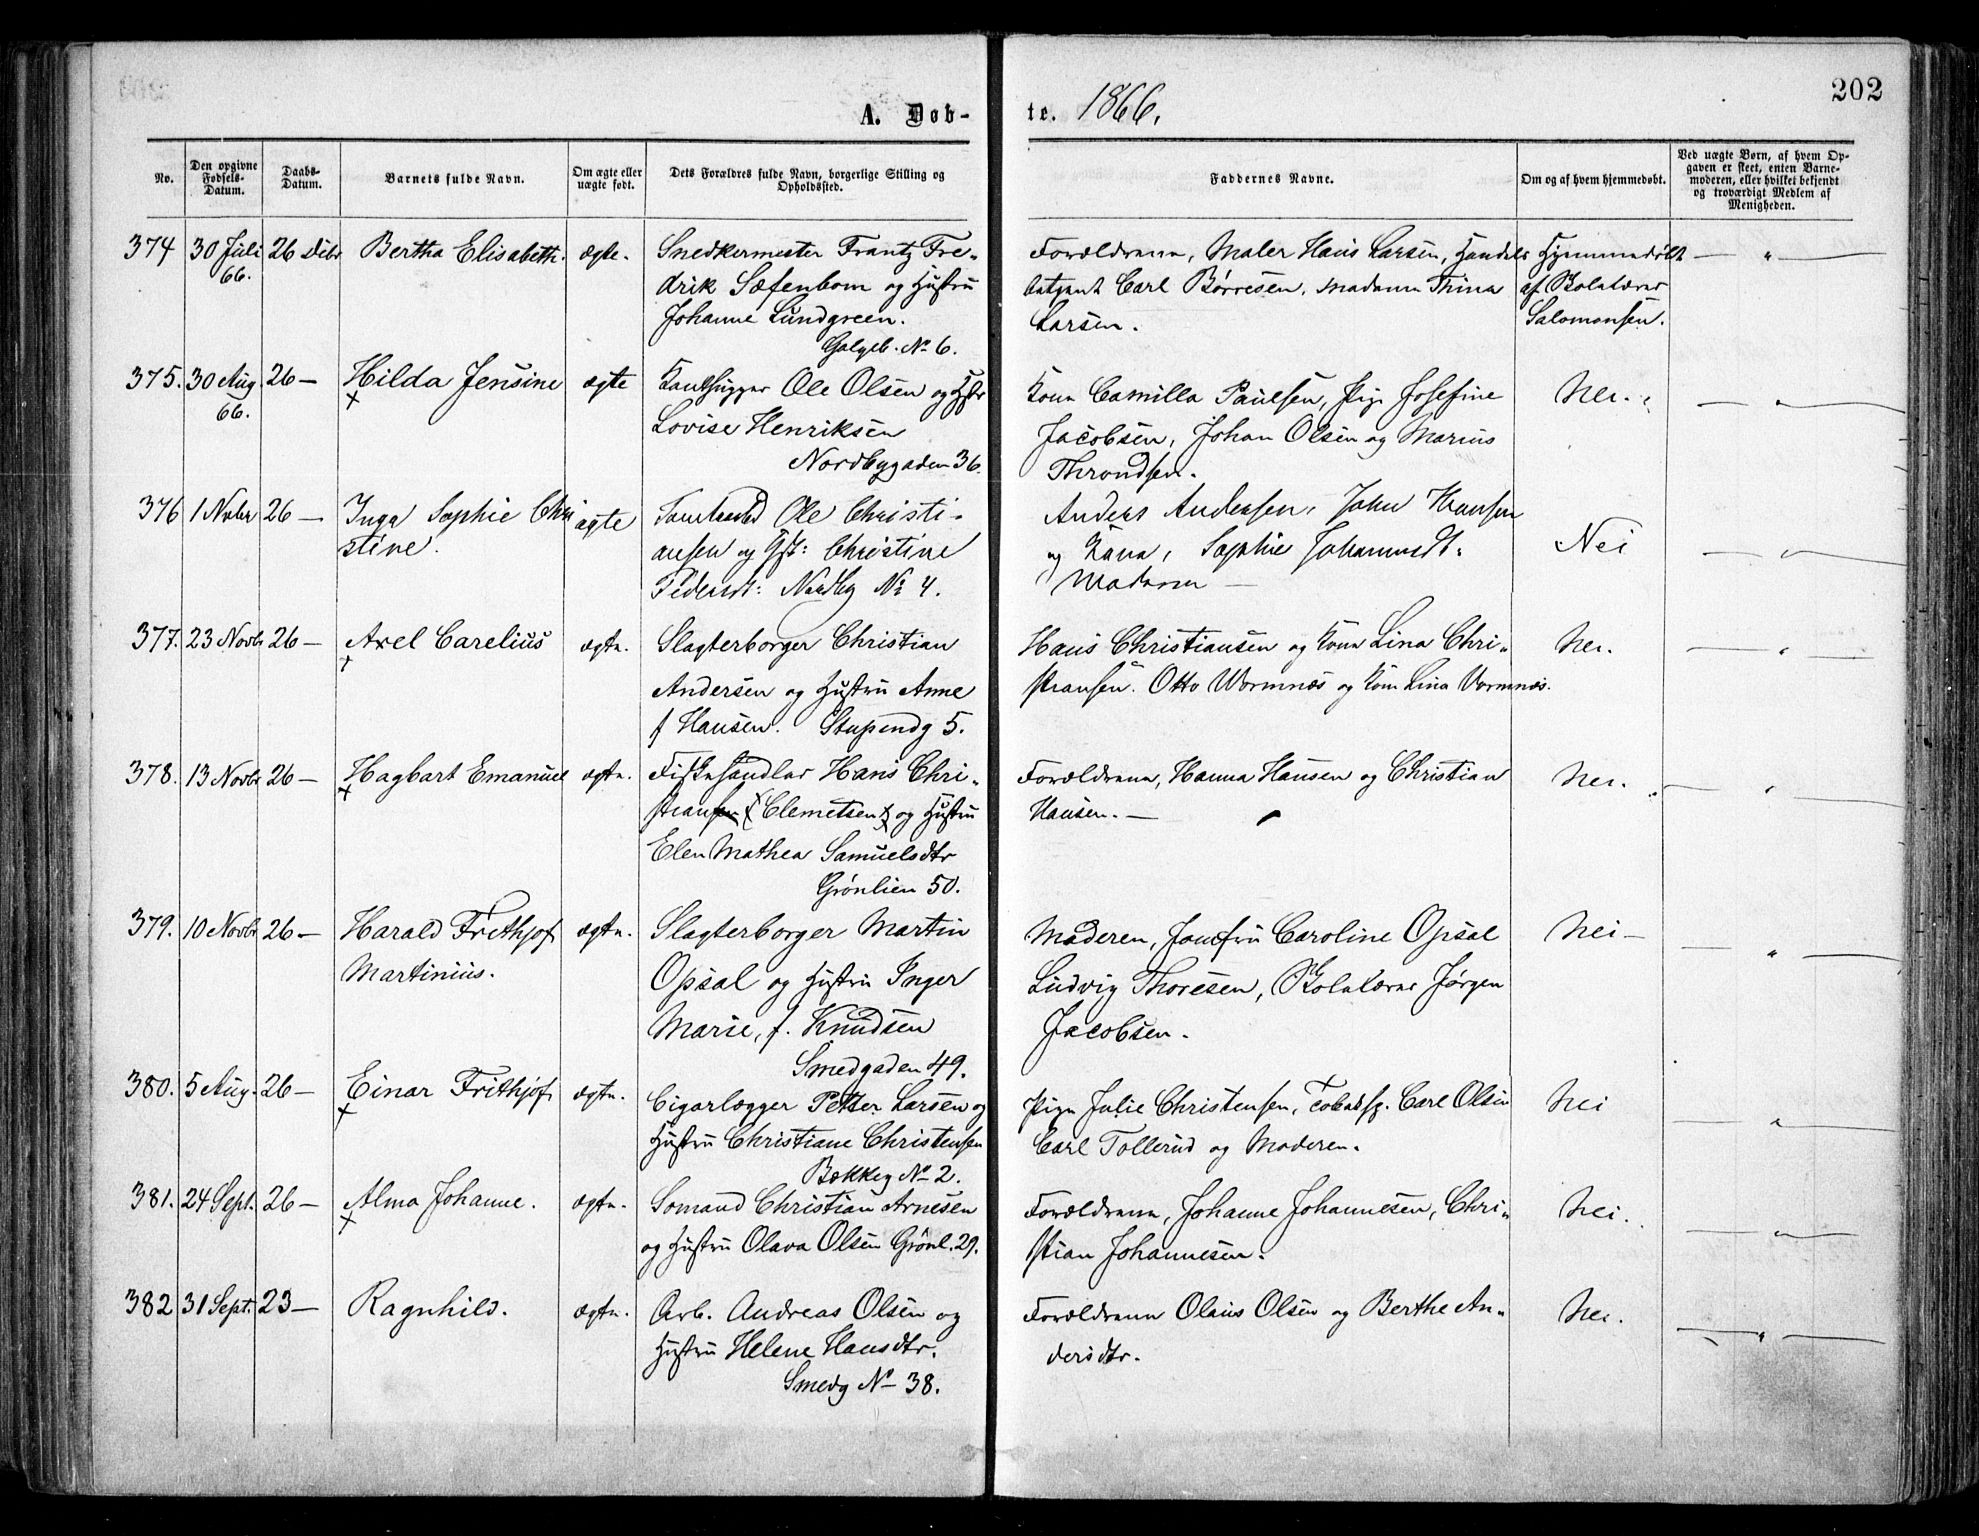 202
A. Døb-
te. 1866.
No.
Den opgivne
Fødsels-
Datum.
Daabs-
Datum.
Barnets fulde Navn.
Om ægte eller
uægte født.
Dets Forældres fulde Navn, borgerlige Stilling og
Opholdssted.
Faddernes Navne.
Om og af hvem hjemmedøbt.
Ved uægte Børn, af hvem Op-
gaven er skeet, enten Barne-
moderen, eller hvilket bekjendt
og troværdigt Medlem af
Menigheden.
374 30 Juli 26 Debr Bertha Elisabeth. ægte.
66.
Snedkermester Frantz Fre-
drik Sæfenbom og Hustru
Johanne Lundgreen.
Galgeb. No 6.
Forældrene, Maler Hans Larsen, Handels
betjent Carl Børresen, Madame Thina
Larsen.
Hjemmedøbt
af Skolelærer
Salomonsen.
375. 30 Aug. 26 — Hilda Jensine ægte
66.
Ole Olsen og Hstr
Lovise Henriksen
Nordbygaden 36.
Kone Camilla Paulsen, Pige Josefine
Jacobsen, Johan Olsen og Marius
Throndsen.
Nei.
376 1 Nvbr 26 — Inga Sophie Chri ægte
stine.
Ole Christi-
ansen og Hst: Christine
Pedersdt: Nordby No 4.
Anders Andersen, John Hansen
og Kona, Sophie Johannesdt:
Madamer —
Nei
377. 23 Novbr 26 — Axel Carelius ægte.
Slagterborger Christian
Andersen og Hustru Anne
f Hansen. Stupendg 5.
Hans Christiansen og Kone Lina Chri-
stiansen. Otto Wormnæs og Kone Lina Vormnæs.
Nei.
378. 13 Novbr 26 — Hagbart Emanuel ægte.
Fiskehandler Hans Chri-
stiansen (Clemetsen) og Hustru
Elen Mathea Samuelsdtr
Grønlien 50.
Forældrene, Hanna Hansen og Christian
Hansen. —
Nei.
379. 10 Novbr 26 — Harald Frithjof ægte.
Martinius.
Slagterborger Martin
Opsal og Hustru Inger
Marie, f. Knudsen
Smedgaden 49.
Moderen, Jomfru Caroline Opsal
Ludvig Thoresen, Skolelærer Jørgen
Jacobsen.
Nei —
380. 5 Aug. 26 — Einar Frithjof ægte.
Cigarlægger Petter Larsen og
Hustru Christiane Christensen
Bækkeg No 2.
Pige Julie Christensen, Tobaksp. Carl Olsen
Carl Tollerud og Moderen.
Nei
381. 24 Sept. 26 — Alma Johanne. ægte.
Sømand Christian Arnesen
og Hustru Olava Olsen Grønl. 29.
Forældrene, Johanne Johannesen, Chri-
stian Johannesen.
Nei.
382 31 Sept. 23 — Ragnhild. ægte.
Arb. Andreas Olsen og
Hustru Helene Hansdtr.
Smedg No 38.
Forældrene Olaus Olsen og Berthe An-
dersdtr.
Nei.